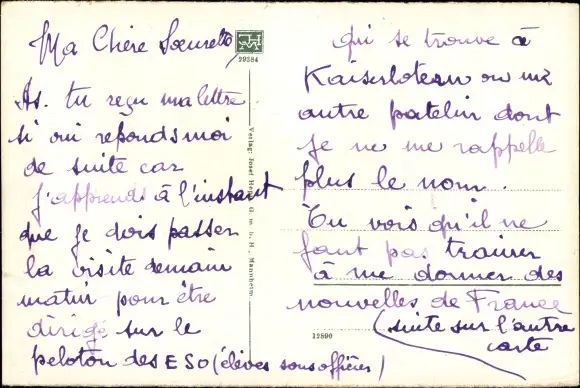 Ma Chère Soeurette
29284
As. tu reçu ma lettre
si oui réponds moi
de suite car
j'apprends à l'instant
que je dois passer
la visite demain
matin pour être
dirigé sur le
peloton des ESO (élèves sous officier)
Verlag: Josef G. m. b. H. Mannheim
qui se trouve à
Kaiserlotern ou une
autre patelin dont
je ne me rappelle
plus le nom.
Tu vois qu'il ne
faut pas trainer
à me donner des
nouvelles de France
(suite sur l'autre
carte
12890